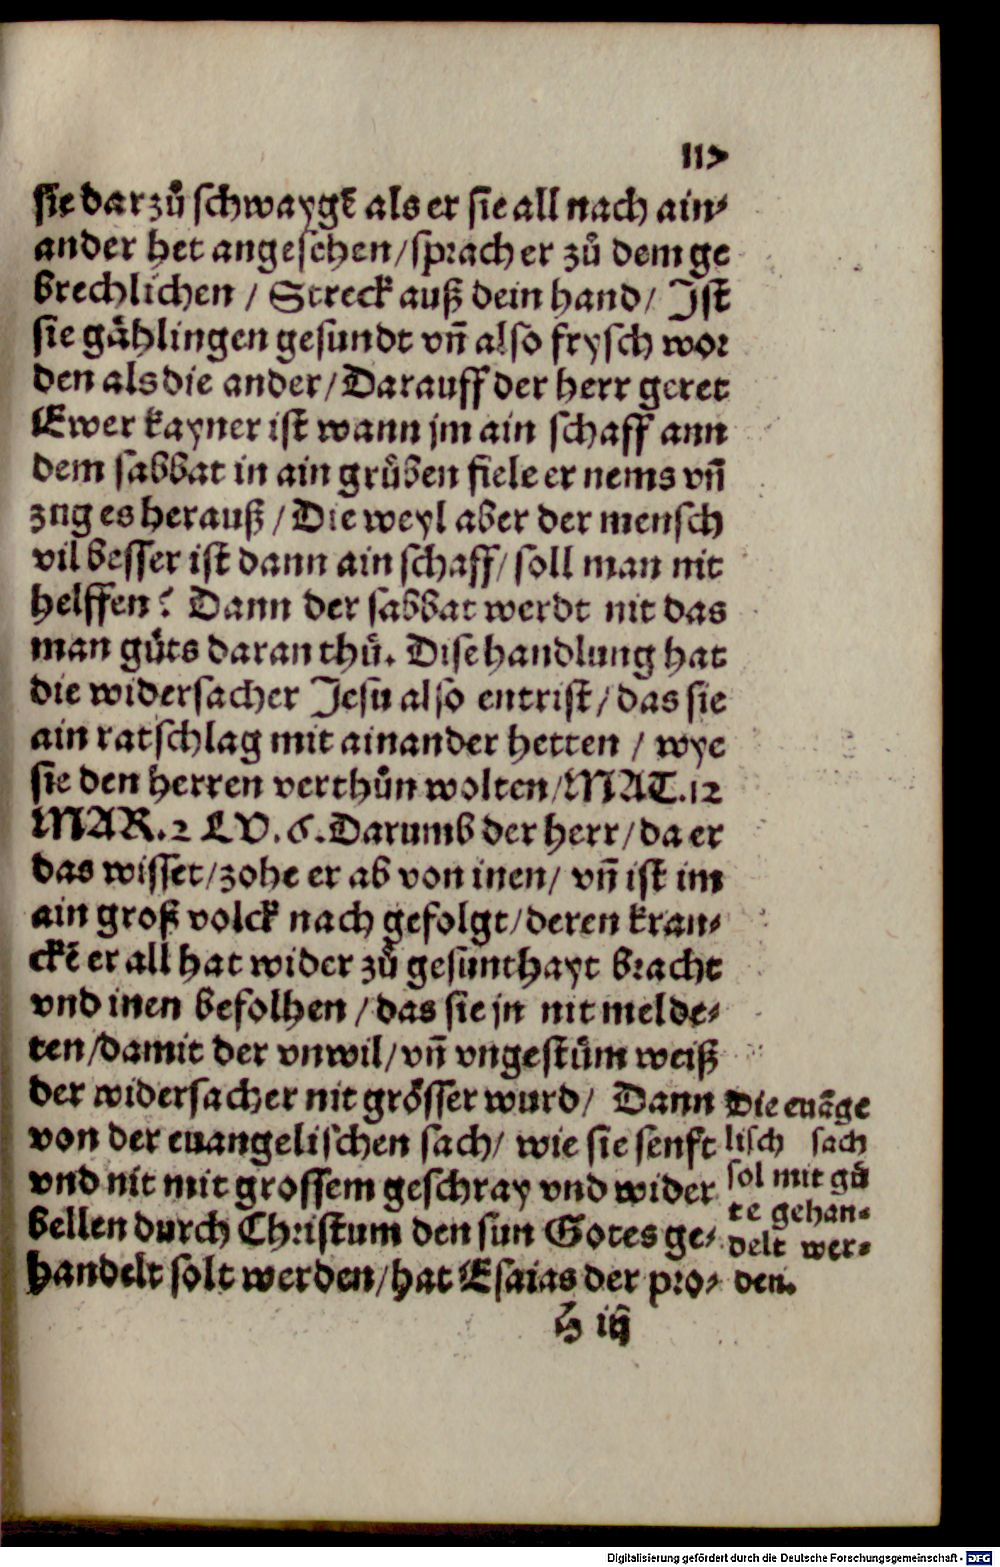 117
sie darzů schwaygẽ als er sie all nach ain⸗
ander het angesehen/sprach er zů dem ge
brechlichen / Streck auß dein hand/ Ist
sie gåhlingen gesundt vñ also frysch wor
den als die ander/Darauff der herr geret
Ewer kayner ist wann jm ain schaff ann
dem sabbat in ain grůben fiele er nems vñ
zug es herauß /Die weyl aber der mensch
vil besser ist dann ain schaff/soll man nit
helffen? Dann der sabbat werdt nit das
man gůts daran thů. Dise handlung hat
die widersacher Jesu also entrist/das sie
ain ratschlag mit ainander hetten / wye
sie den herren verthůn wolten/MAT.12
MAR.2 LV.6.Darumb der herr/da er
das wisset/zohe er ab von inen/ vñ ist im
ain groß volck nach gefolgt/deren kran⸗
ckẽ er all hat wider zů gesunthayt bracht
vnd inen befolhen /das sie jn nit melde⸗
ten/damit der vnwil/vñ vngestům weiß
der widersacher nit grősser wurd/ Dann
von der euangelischen sach/ wie sie senft
vnd nit mit grossem geschray vnd wider
bellen durch Christum den sun Gotes ge⸗
handelt solt werden/hat Esaias der pro⸗
Die euãge
lisch sach
sol mit gů
te gehan⸗
delt wer⸗
den.
H iij
Digitalisierung gefördert durch die Deutsche Forschungsgemeinschaft - DFG